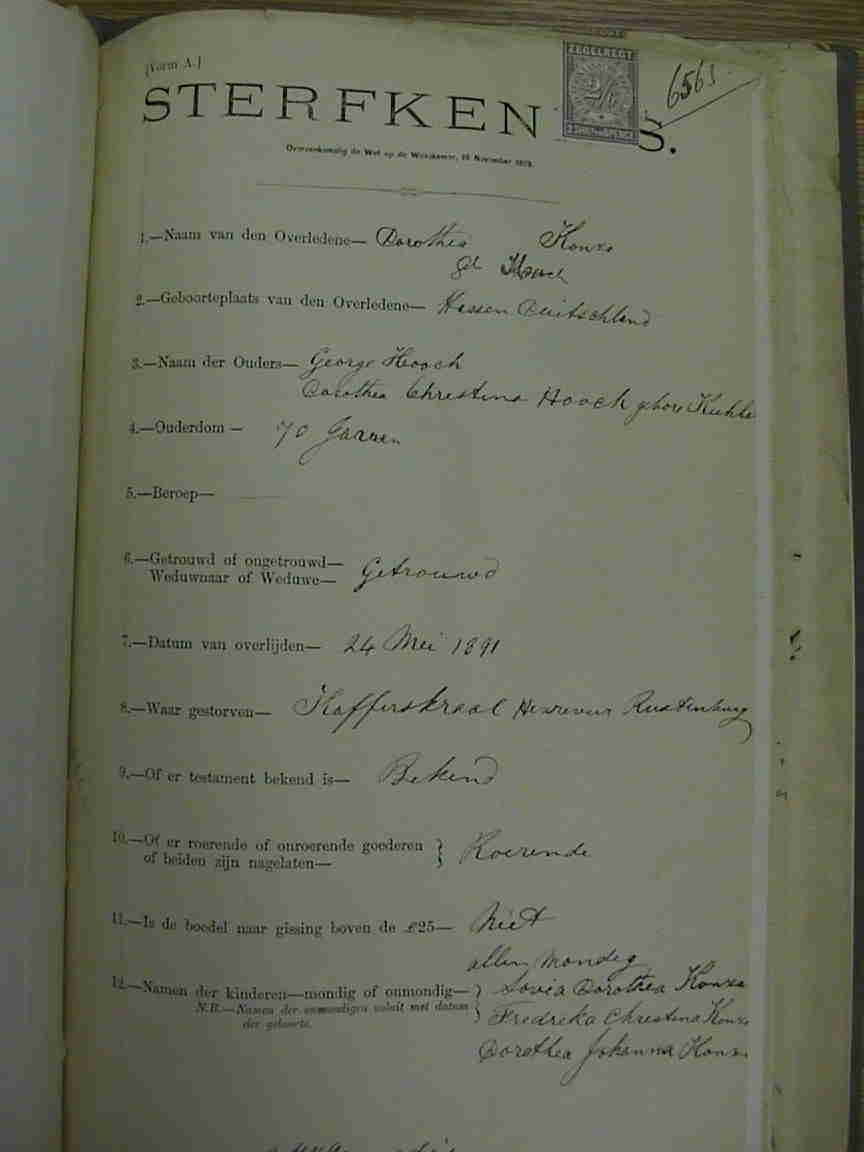 [Vorm A.]
ZEGELREGT
2/6
2 SHILL. 6 PENCE
6565
STERFKEN S.
Overeenkomstig de Wet op de Weeskamer, 18 November 1873.
1.—Naam van den Overledene— Dorothea Konze
gb Hooch
2.—Geboorteplaats van den Overledene— Hessen Duitschland
3.—Naam der Ouders— George Hooch
Dorothea Christina Hooch gbore Kuhle
4.—Ouderdom— 70 Jaaren
5.—Beroep—
6.—Getrouwd of ongetrouwd—
Weduwnaar of Weduwe— Getrouwd
7.—Datum van overlijden— 24 Mei 1891
8.—Waar gestorven— Kafferskraal Hexrevier Rustenburg
9.—Of er testament bekend is— Bekend
10.—Of er roerende of onroerende goederen
of beiden zijn nagelaten— } Roerende
11.—Is de boedel naar gissing boven de £25— Niet
allen mondig
12.—Namen der kinderen—mondig of onmondig— } Sovia Dorothea Konze
N.B.—Namen der onmondigen voluit met datum } Fredreka Christina Konze
der geboorte. Dorothea Johanna Konze